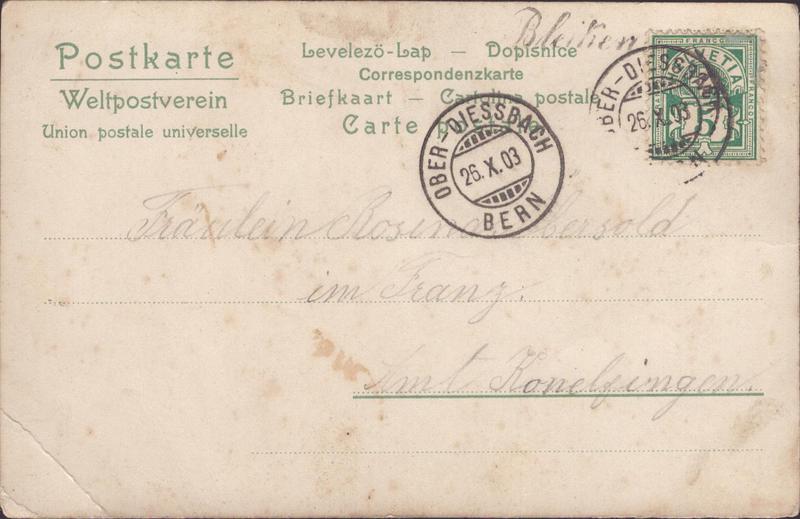 Bleiken
Postkarte
Weltpostverein
Union postale universelle
Levelezö-Lap — Dopisnice
Correspondenzkarte
Briefkaart — Cartolina postale
Carte postale
FRANCO
HELVETIA
FRANCO
5
OBER-DIESSBACH
26.X.03
BERN
OBER-DIESSBACH
26.X.03
Fräulein Rosina Obersold
im Franz.
Amt Konolfingen.